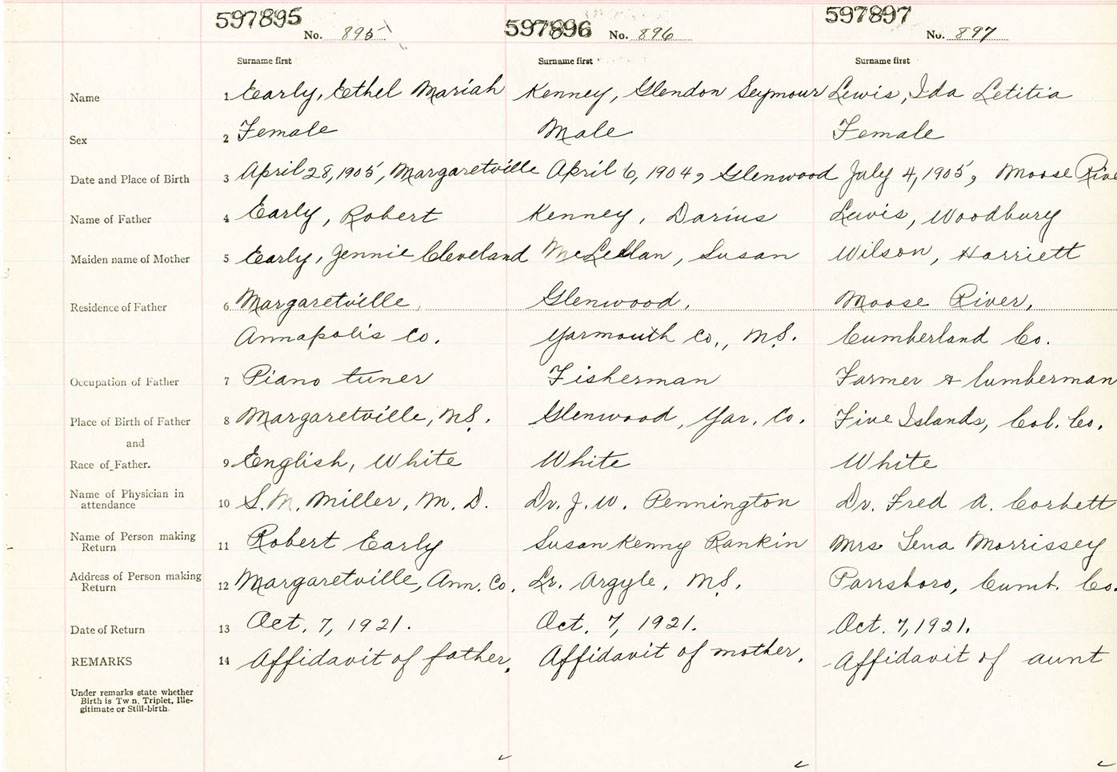 597895 597896 597897
No. 895 No. 896 No. 897
Surname first Surname first Surname first
Name 1 Early, Ethel Mariah Kenney, Glendon Seymour Lewis, Ida Letitia
Sex 2 Female Male Female
Date and Place of Birth 3 April 28, 1905, Margaretville April 6, 1904, Glenwood July 4, 1905, Moose Rive
Name of Father 4 Early, Robert Kenney, Darius Lewis, Woodbury
Maiden name of Mother 5 Early, Jennie Cleveland McLellan, Susan Wilson, Harriett
Residence of Father 6 Margaretville, Glenwood, Moose River,
Annapolis Co. Yarmouth Co., N.S. Cumberland Co.
Occupation of Father 7 Piano tuner Fisherman Farmer & lumberman
Place of Birth of Father 8 Margaretville, N.S. Glenwood, Yar. Co. Five Islands, Col. Co.
and
Race of Father. 9 English, White White White
Name of Physician in
attendance 10 S.N. Miller, M.D. Dr. J.W. Pennington Dr. Fred A. Corbett
Name of Person making
Return 11 Robert Early Susan Kenny Rankin Mrs Lena Morrissey
Address of Person making
Return 12 Margaretville, Ann. Co. Lr. Argyle, N.S. Parrsboro, Cumb. Co.
Date of Return 13 Oct. 7, 1921. Oct. 7, 1921. Oct. 7, 1921.
REMARKS 14 Affidavit of father. Affidavit of mother. Affidavit of aunt
Under remarks state whether
Birth is Tw n, Triplet, Ille-
gitimate or Still-birth.